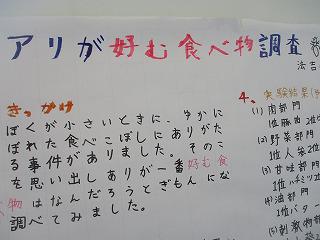 アリが好む食べ物調査
法吉
きっかけ
ぼくが小さいときに、ゆかに
食べこぼしにありがた
事件がありました。そのこ
を思い出し、ありが一番好む食
物はなんだろうとぎもんにな
調べてみました。
4、実験結果
(1) 肉部門
1位 豚肉 2位
(2) 野菜部門
1位 人参 2位
(3) 甘味部門
1位 ハチミツ
(4) 油部門
1位 バター
(5) 刺激物部